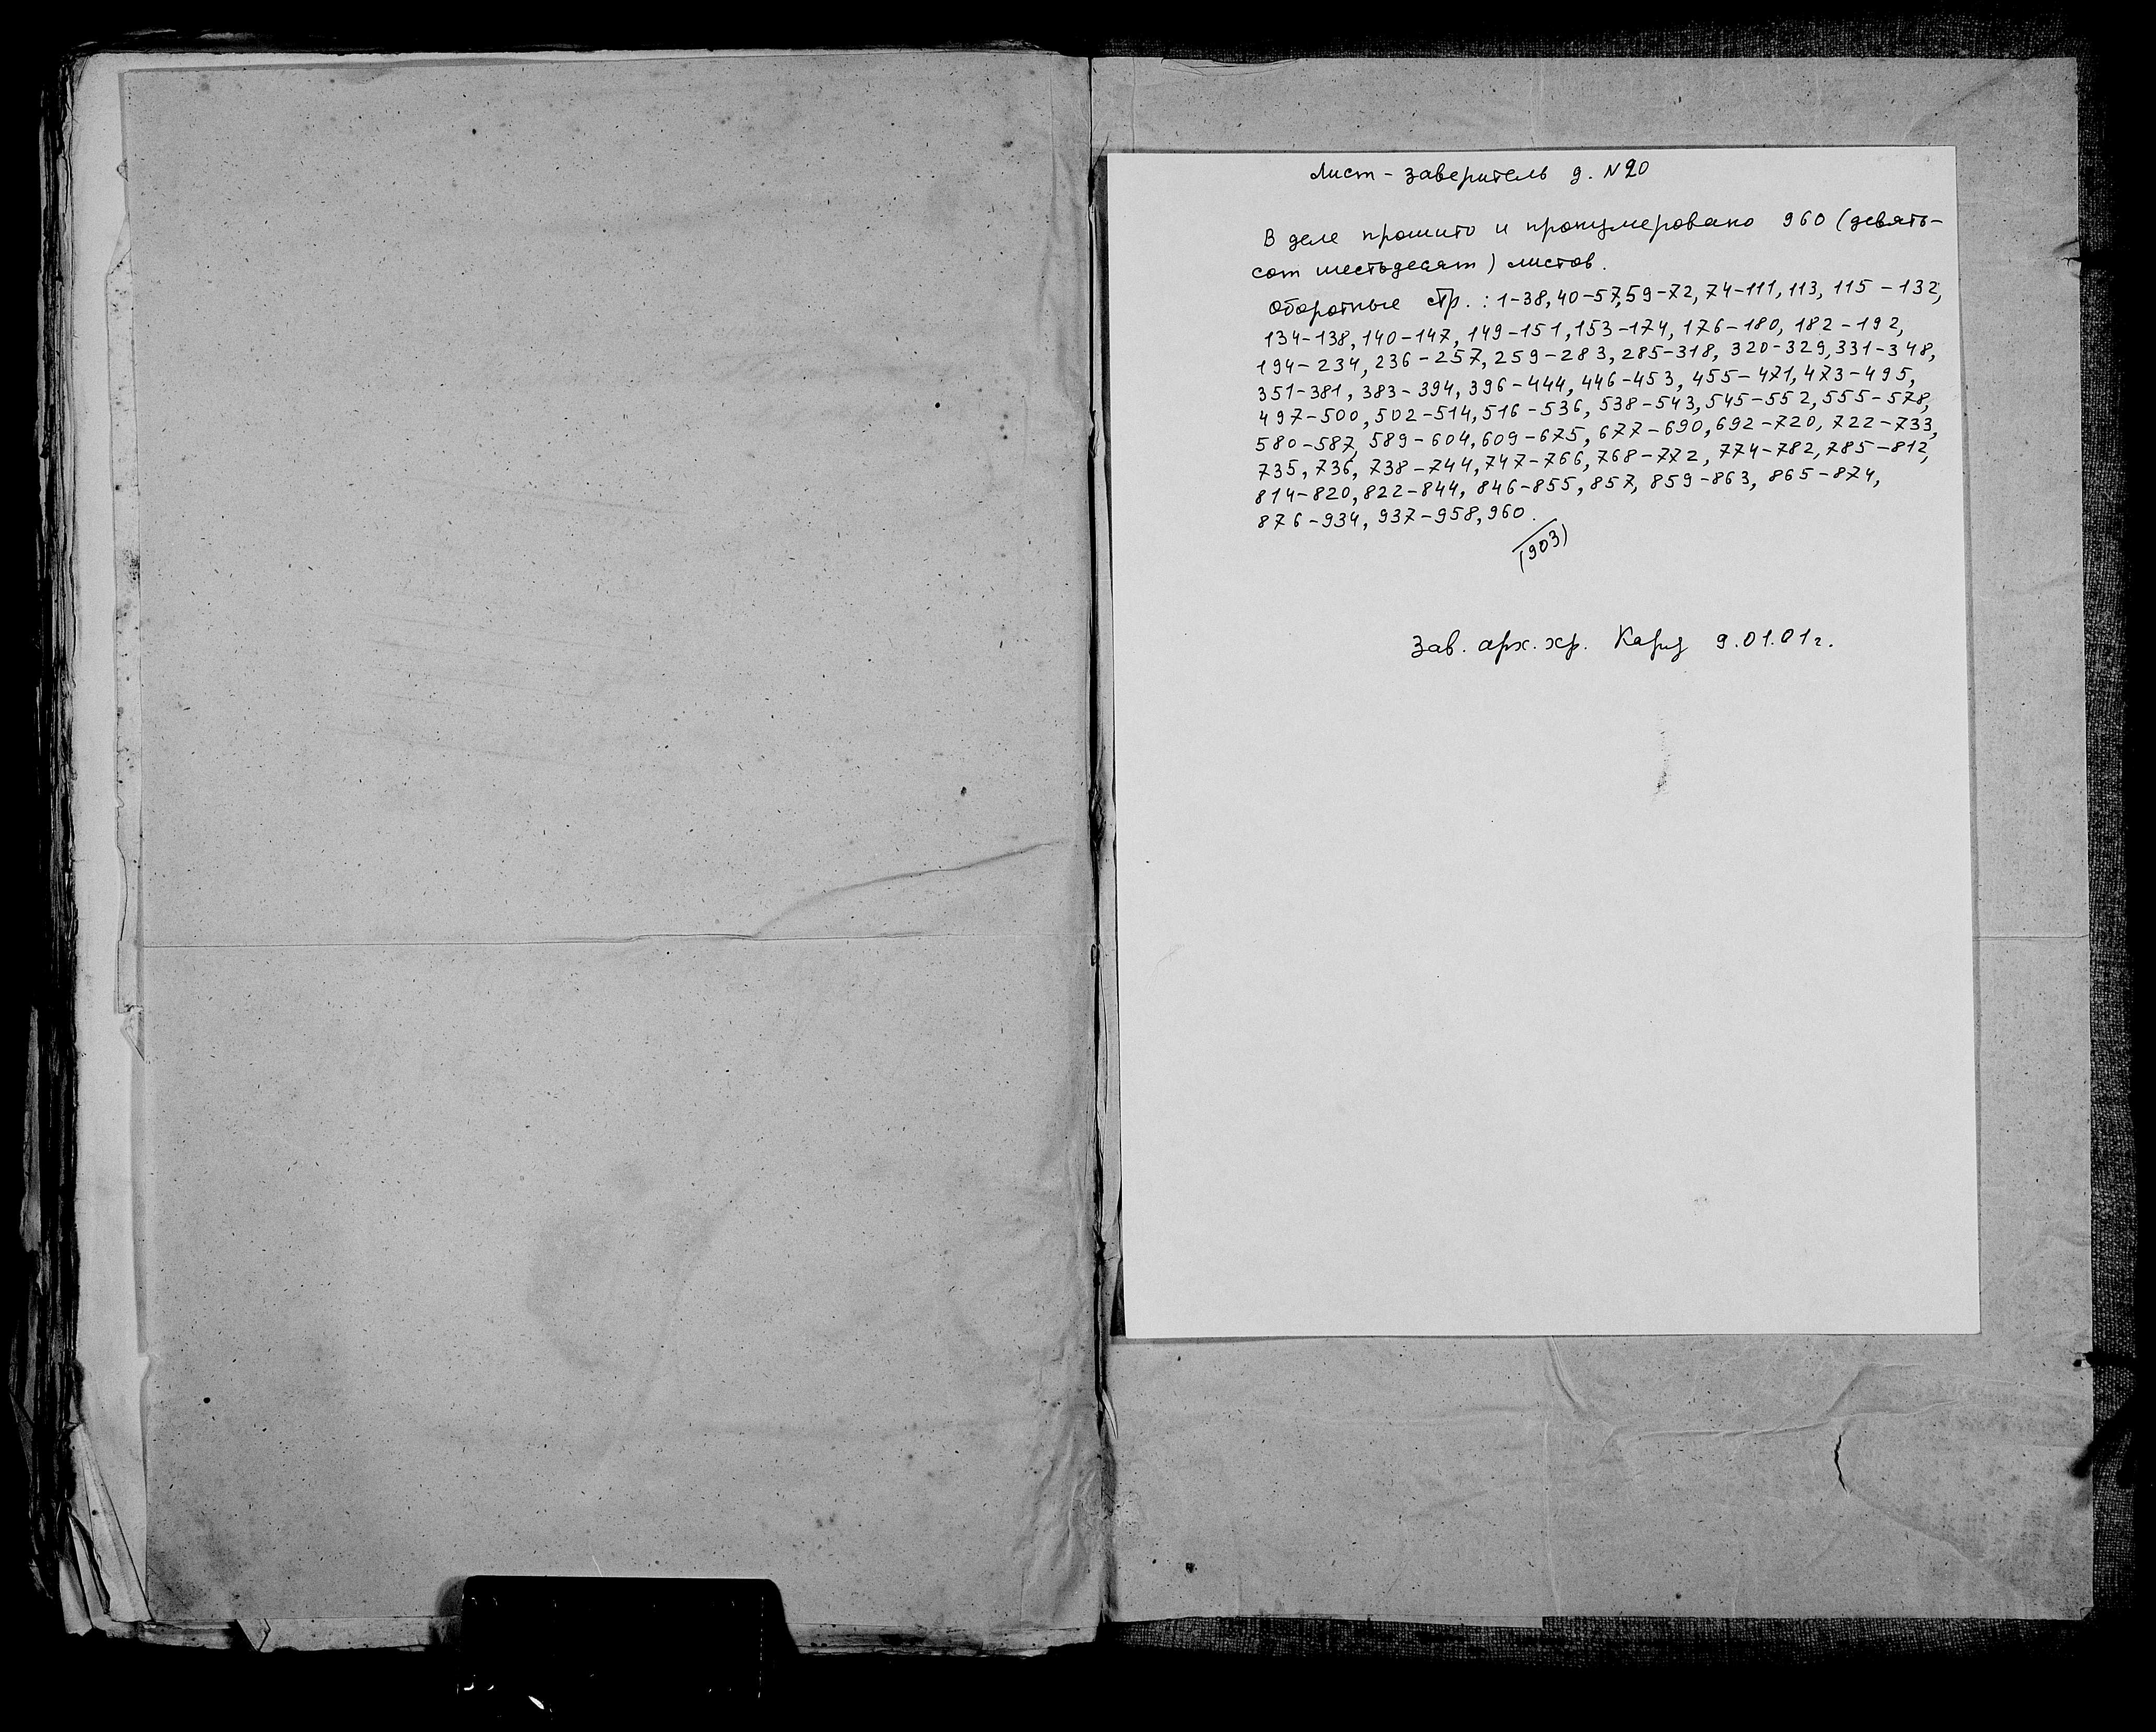 Лист-заверитель д. N 20
В деле прошито и пронумеровано 960 (девять-
сот шестьдесят) листов.
Оборотные стр.: 1-38, 40-57, 59-72, 74-111, 113, 115-132,
134-138, 140-147, 149-151, 153-174, 176-180, 182-192,
194-234, 236-257, 259-283, 285-318, 320-329, 331-348,
351-381, 383-394, 396-444, 446-453, 455-471, 473-495,
497-500, 502-514, 516-536, 538-543, 545-552, 555-578,
580-587, 589-604, 609-675, 677-690, 692-720, 722-733,
735, 736, 738-744, 747-766, 768-772, 774-782, 785-812,
814-820, 822-844, 846-855, 857, 859-863, 865-874,
876-934, 937-958, 960.
(903)
Зав. арх. хр. 9.01.01г.